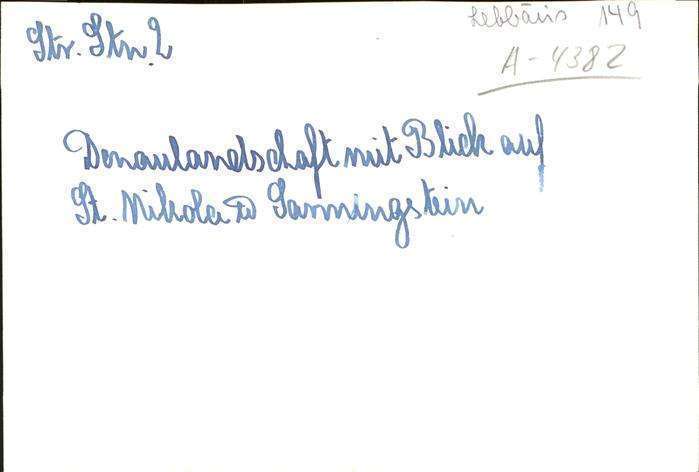 Str. Strn. 2
149
A-4382
Donaulandschaft mit Blick auf
St. Nikola u Sarmingstein